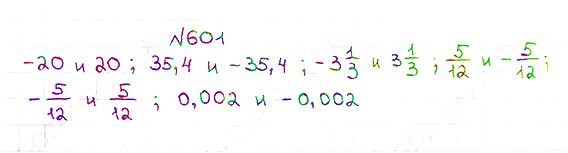 №601
-20 и 20 ; 35,4 и -35,4 ; -3 1/3 и 3 1/3 ; 5/12 и -5/12 ;
-5/12 и 5/12 ; 0,002 и -0,002